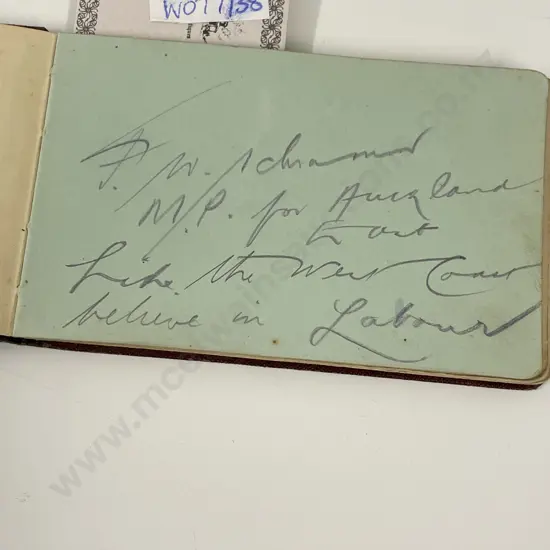 WOTT/38
F. W. Schramm
M.P. for Auckland
East
Like the West Coast
believe in Labour